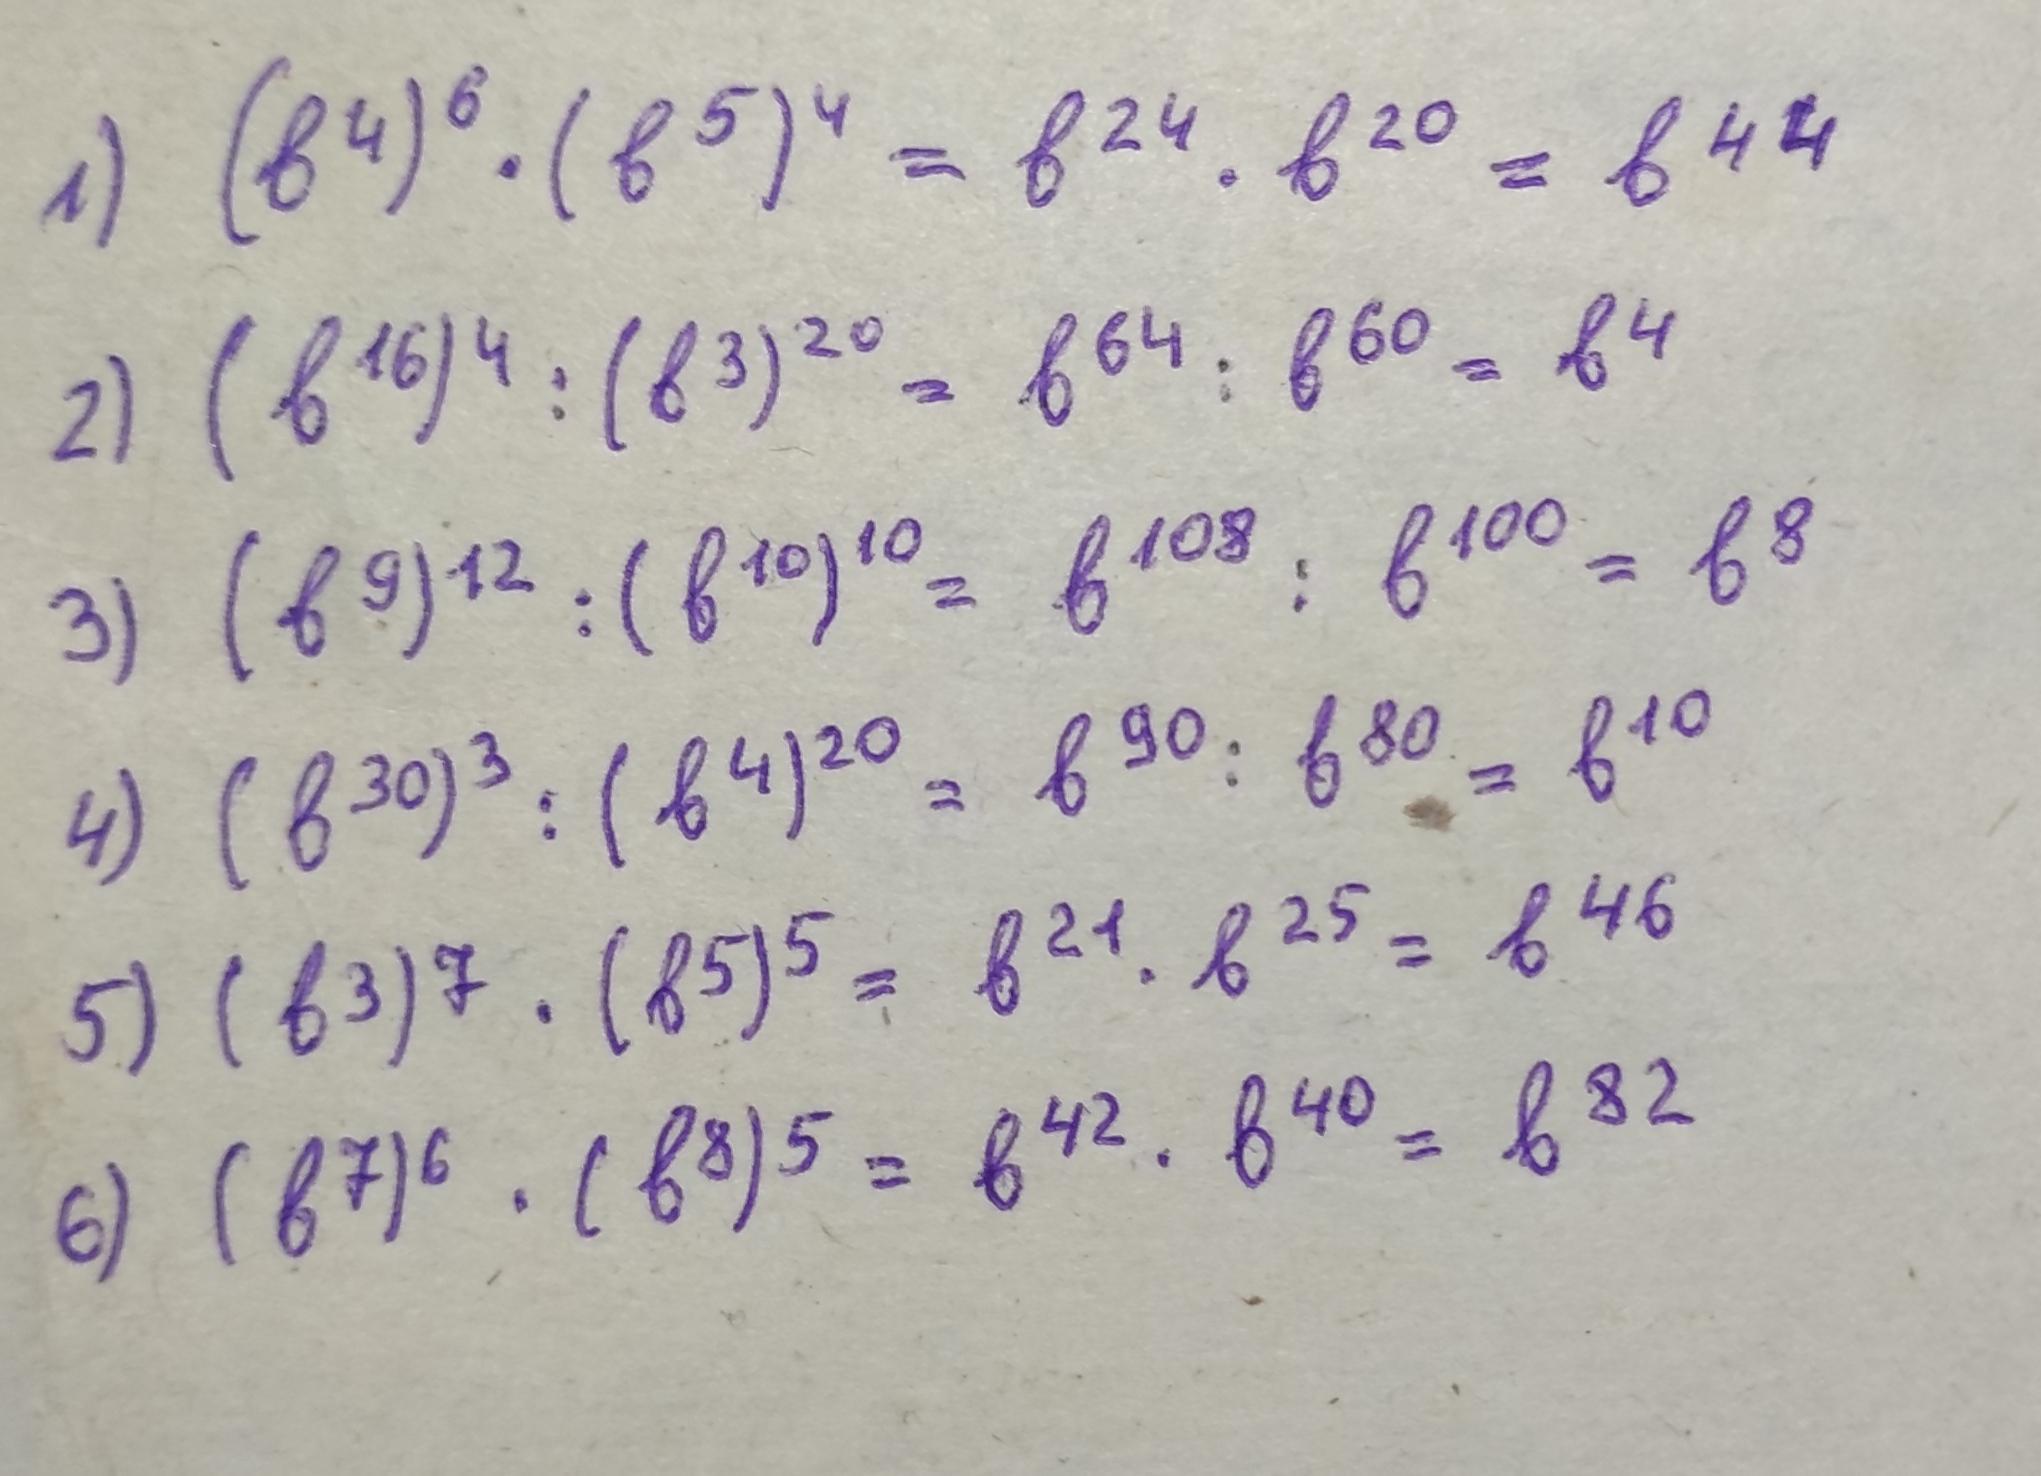 1) (b⁴)⁶ · (b⁵)⁴ = b²⁴ · b²⁰ = b⁴⁴
2) (b¹⁶)⁴ : (b³)²⁰ = b⁶⁴ : b⁶⁰ = b⁴
3) (b⁹)¹² : (b¹⁰)¹⁰ = b¹⁰⁸ : b¹⁰⁰ = b⁸
4) (b³⁰)³ : (b⁴)²⁰ = b⁹⁰ : b⁸⁰ = b¹⁰
5) (b³)⁷ · (b⁵)⁵ = b²¹ · b²⁵ = b⁴⁶
6) (b⁷)⁶ · (b⁸)⁵ = b⁴² · b⁴⁰ = b⁸²